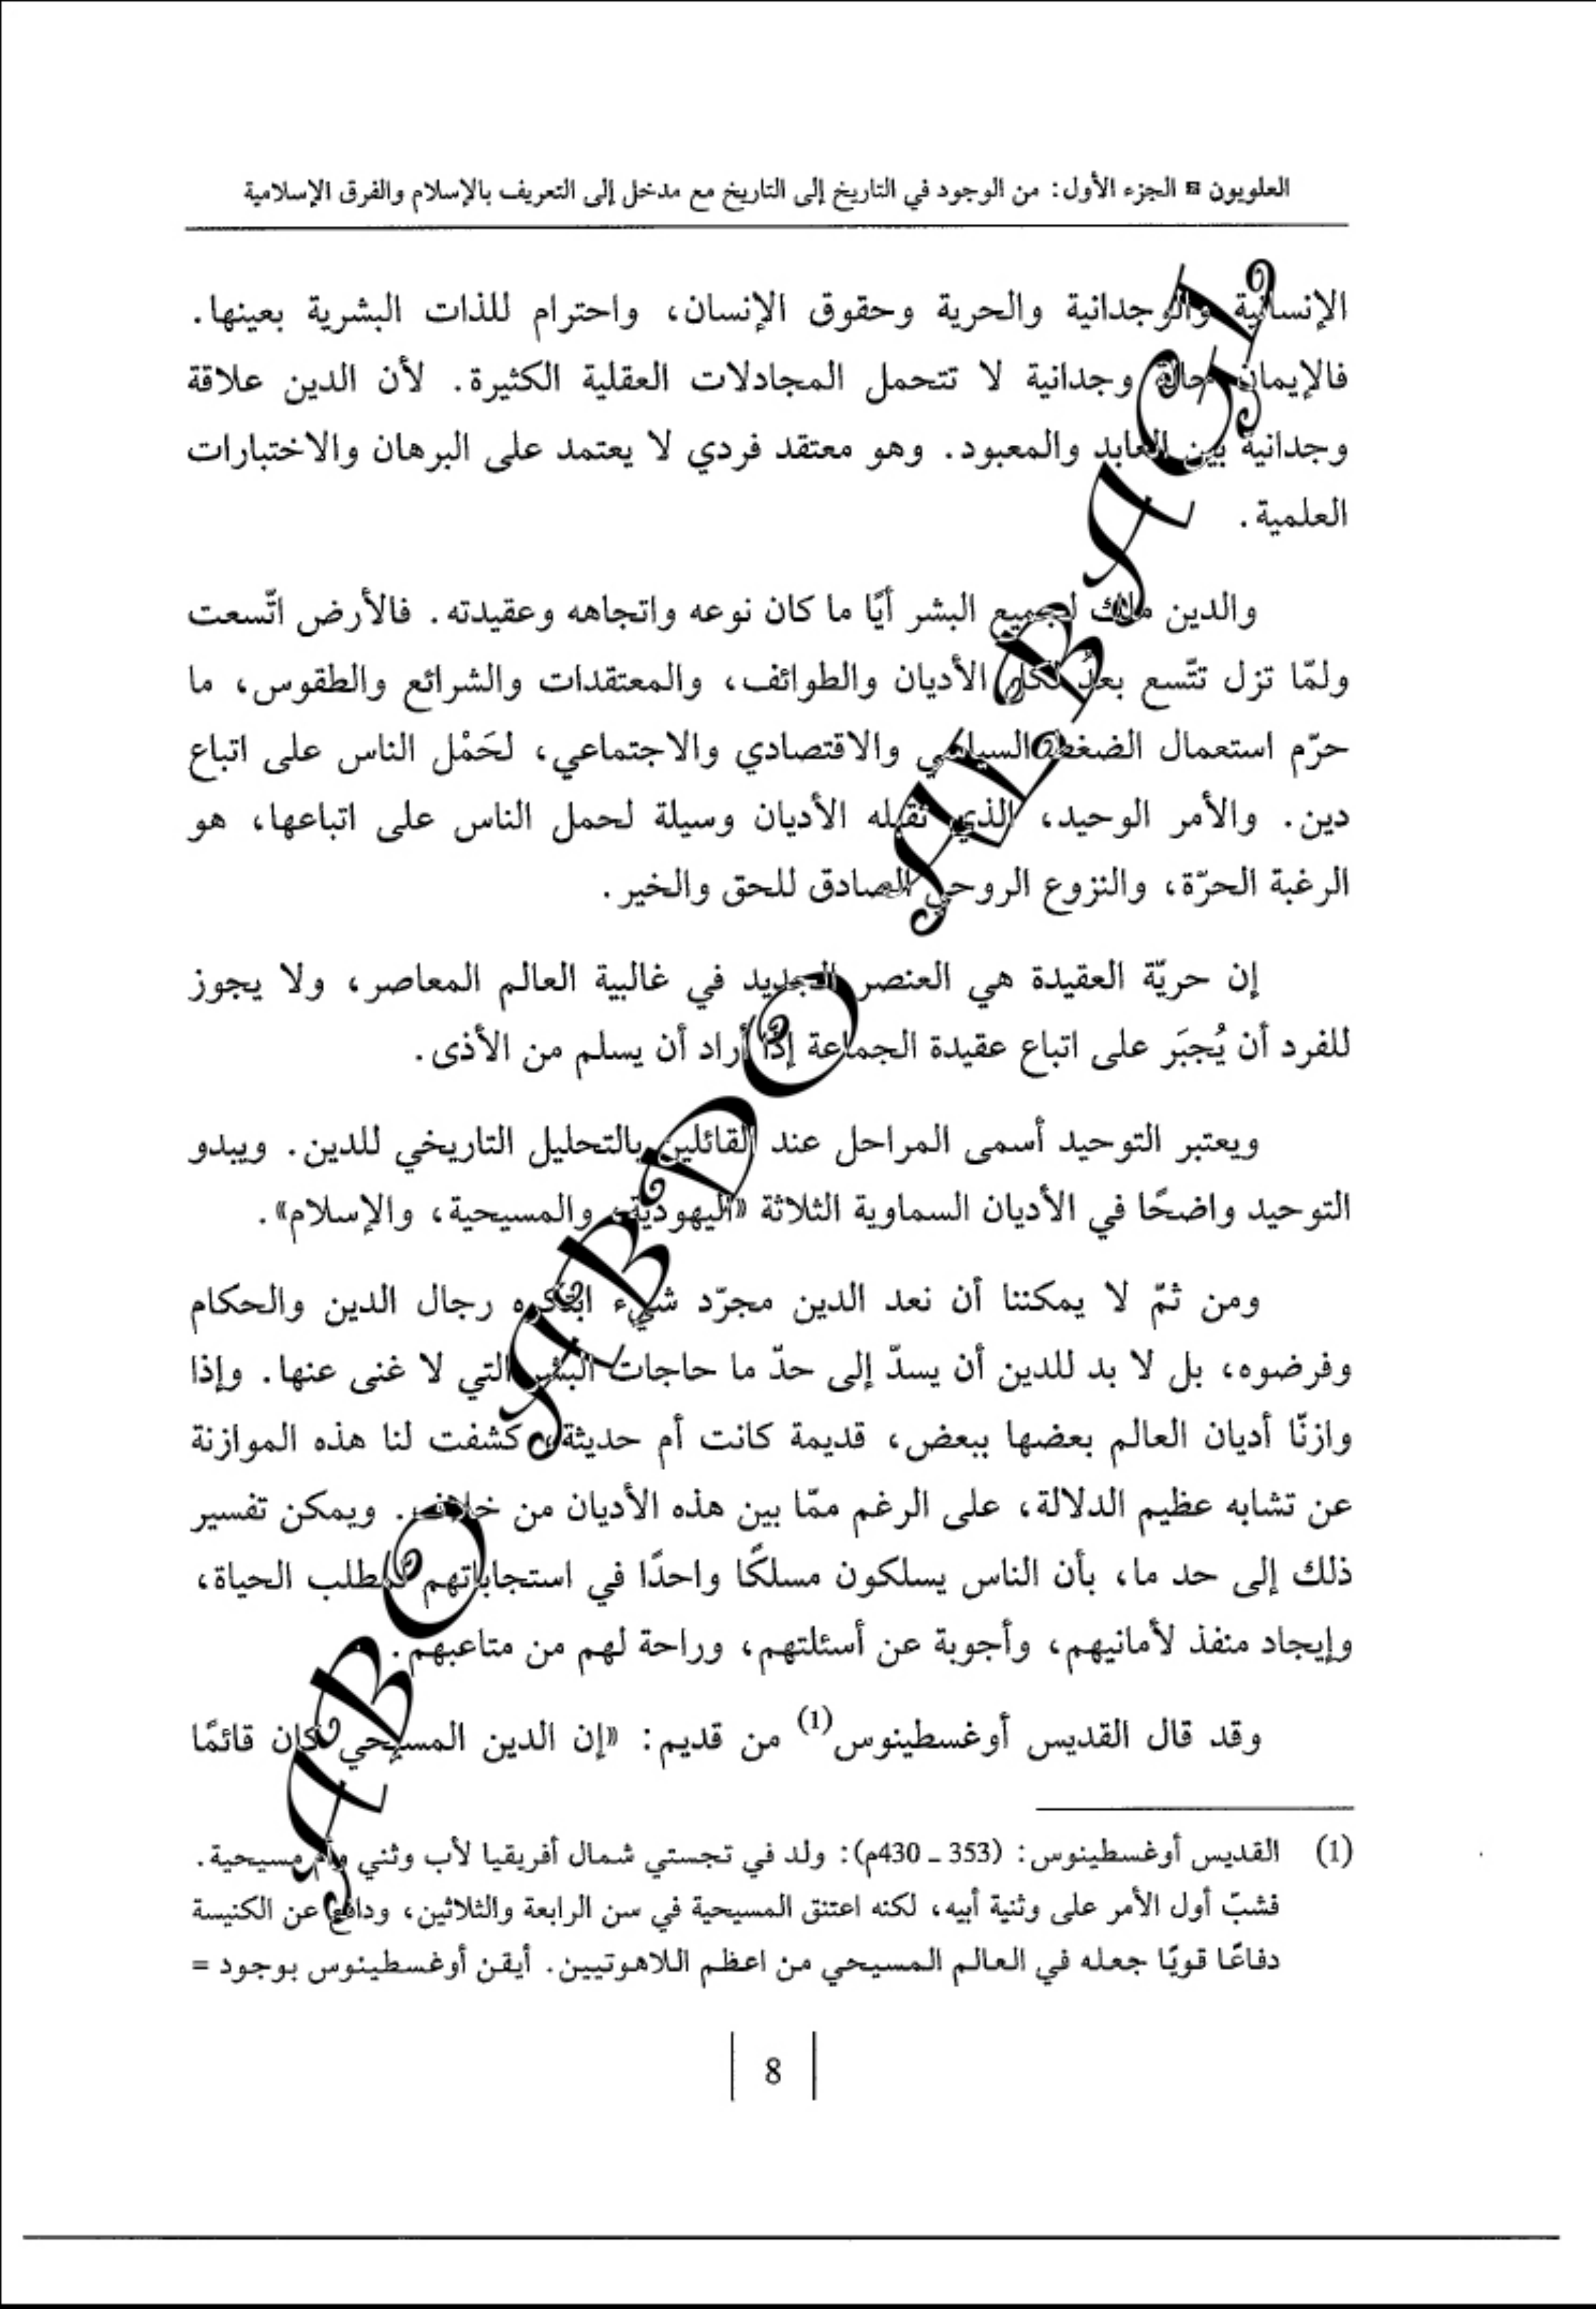 العلويون ¤ الجزء الأول: من الوجود في التاريخ إلى التاريخ مع مدخل إلى التعريف بالإسلام والفرق الإسلامية
الإنسانية والوجدانية والحرية وحقوق الإنسان، واحترام للذات البشرية بعينها.
فالإيمان حالة وجدانية لا تتحمل المجادلات العقلية الكثيرة. لأن الدين علاقة
وجدانية بين العابد والمعبود. وهو معتقد فردي لا يعتمد على البرهان والاختبارات
العلمية.
والدين ملك لجميع البشر أيًا ما كان نوعه واتجاهه وعقيدته. فالأرض اتّسعت
ولمّا تزل تتّسع بعدُ لكل الأديان والطوائف، والمعتقدات والشرائع والطقوس، ما
حرّم استعمال الضغط السياسي والاقتصادي والاجتماعي، لحَمْل الناس على اتباع
دين. والأمر الوحيد، الذي تقبله الأديان وسيلة لحمل الناس على اتباعها، هو
الرغبة الحرّة، والنزوع الروحي الصادق للحق والخير.
إن حريّة العقيدة هي العنصر الجديد في غالبية العالم المعاصر، ولا يجوز
للفرد أن يُجبَر على اتباع عقيدة الجماعة إذا أراد أن يسلم من الأذى.
ويعتبر التوحيد أسمى المراحل عند القائلين بالتحليل التاريخي للدين. ويبدو
التوحيد واضحًا في الأديان السماوية الثلاثة «اليهودية، والمسيحية، والإسلام».
ومن ثمّ لا يمكننا أن نعد الدين مجرّد شيء ابتكره رجال الدين والحكام
وفرضوه، بل لا بد للدين أن يسدّ إلى حدّ ما حاجات البشر التي لا غنى عنها. وإذا
وازنّا أديان العالم بعضها ببعض، قديمة كانت أم حديثة، كشفت لنا هذه الموازنة
عن تشابه عظيم الدلالة، على الرغم ممّا بين هذه الأديان من خلاف. ويمكن تفسير
ذلك إلى حد ما، بأن الناس يسلكون مسلكًا واحدًا في استجاباتهم لمطلب الحياة،
وإيجاد منفذ لأمانيهم، وأجوبة عن أسئلتهم، وراحة لهم من متاعبهم.
وقد قال القديس أوغسطينوس(1) من قديم: «إن الدين المسيحي كان قائمًا
(1) القديس أوغسطينوس: (353 ـ 430م): ولد في تجستي شمال أفريقيا لأب وثني وأم مسيحية.
فشبّ أول الأمر على وثنية أبيه، لكنه اعتنق المسيحية في سن الرابعة والثلاثين، ودافع عن الكنيسة
دفاعًا قويًا جعله في العالم المسيحي من اعظم اللاهوتيين. أيقن أوغسطينوس بوجود =
8
ABO ABDO ALBAGL